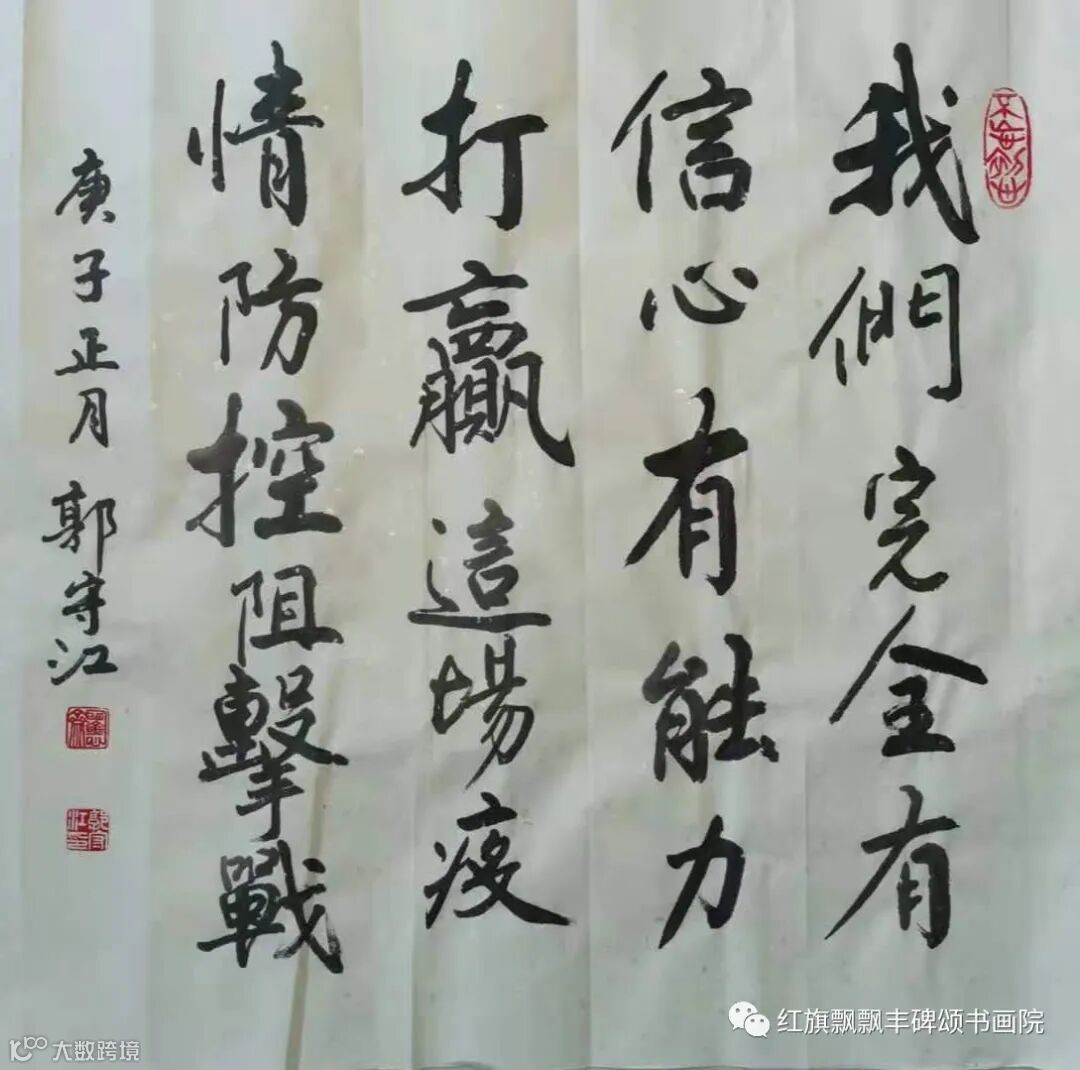 我們完全有
信心有能力
打贏這場疫
情防控阻擊戰
庚子正月 郭守江
郭守江印
红旗飘飘丰碑颂书画院
10100 大数跨境